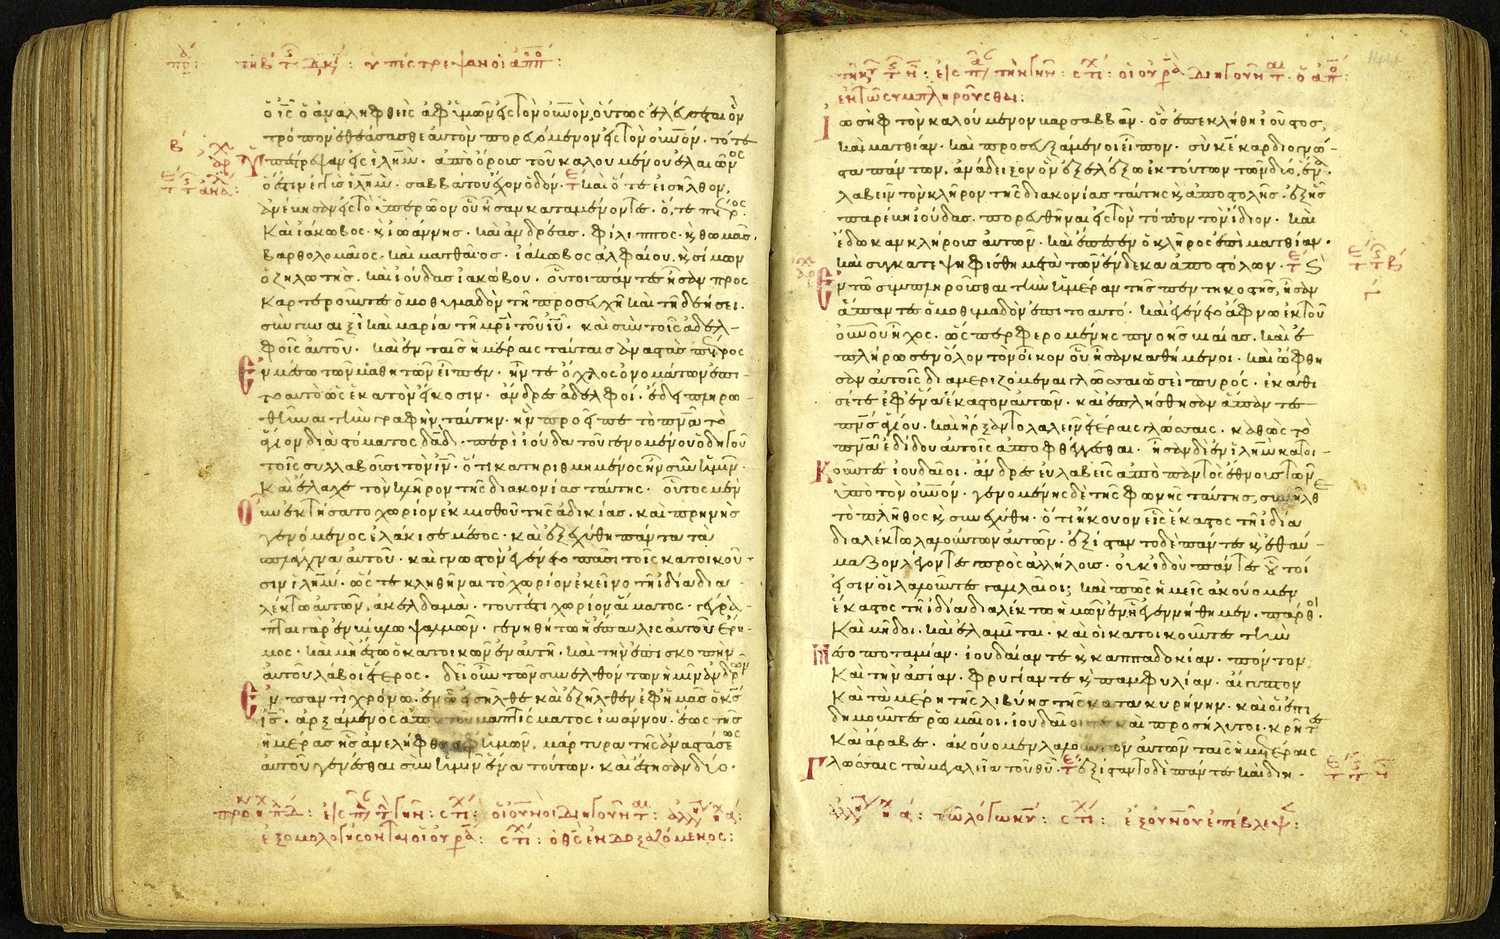 τῆ β τ Δκ: ὑπέστρεψαν οἱ ἀπ:
ὁ ις ὁ ἀναληφθεὶς ἀφ ὑμῶν εἰς τὸν οὐνον, οὕτως ἐλεύσεται ὃν
τρόπον ἐθεάσασθε αὐτὸν πορευόμενον εἰς τὸν οὐνόν. τότε
ὑπέστρεψαν εἰς ιλημ. ἀπὸ ὄρους τοῦ καλουμένου ἐλαιῶνος
ὅ ἐστιν ἐγγὺς ιλημ. σαββάτου ἔχον ὁδόν. καὶ ὅτε εἰσῆλθον,
ἀνέβησαν εἰς τὸ ὑπερῶον οὗ ἦσαν καταμένοντες. ὅ, τε πέτρος.
Καὶ ἰάκωβος. κ ἰωάννης. καὶ ἀνδρέας. φίλιππος. κ θωμᾶς.
βαρθολομαῖος. καὶ ματθαῖος. ἰάκωβος ἀλφαίου. κ σίμων
ὁ ζηλωτὴς. καὶ ἰούδας ἰακώβου. οὗτοι πάντες ἦσαν προς
καρτεροῦντες ὁμοθυμαδὸν τῆ προσευχῆ καὶ τῆ δεήσει.
σὺν γυναιξὶ καὶ μαρία τῆ μρὶ τοῦ ιυ. καὶ σὺν τοῖς ἀδελ-
φοῖς αὐτοῦ. καὶ ἐν ταῖς ἡμέραις ταύταις ἀναστὰς πέτρος
Ἐν μέσω τῶν μαθητῶν εἶπεν. ἦν τε ὄχλος ὀνομάτων ἐπι-
τοαυτὸ ὡς ἑκατὸν εἴκοσιν. ἄνδρες ἀδελφοί. ἔδει πληρω-
θῆναι τὴν γραφὴν ταύτην. ἣν προεῖπε τὸ πνα τὸ
ἅγιον διὰ στόματος δαδ. περὶ ἰούδα τοῦ γενομένου ὁδηγοῦ
τοῖς συλλαβοῦσι τὸν ιν. ὅτι κατηριθμημένος ἦν σὺν ἡμῖν.
Καὶ ἔλαχε τὸν κλῆρον τῆς διακονίας ταύτης. οὗτος μὲν
Οὖν ἐκτήσατο χωρίον ἐκ μισθοῦ τῆς ἀδικίας. καὶ πρηνὴς
γενόμενος ἐλάκισε μέσος. καὶ ἐξεχύθη πάντα τὰ
σπλάγχνα αὐτοῦ. καὶ γνωστὸν ἐγένετο πᾶσι τοῖς κατοικοῦ-
σιν ιλημ. ὥστε κληθῆναι τὸ χωρίον ἐκεῖνο τῆ ἰδία δια-
λέκτω αὐτῶν, ἀκελδαμά. τουτέστι χωρίον αἵματος. γέγρα-
πται γὰρ ἐν βίβλω ψαλμῶν. γενηθήτω ἡ ἔπαυλις αὐτοῦ ἔρη-
μος. καὶ μὴ ἔστω ὁ κατοικῶν ἐν αὐτῆ. καὶ τὴν ἐπισκοπὴν
αὐτοῦ λάβοι ἕτερος. δεῖ οὖν τῶν συνελθόντων ἡμῖν ἀνδρῶν
Ἐν παντὶ χρόνω. ἐν ᾧ εἰσῆλθε καὶ ἐξῆλθεν ἐφ ἡμᾶς ὁ κς
ις. ἀρξάμενος ἀπὸ τοῦ βαπτίσματος ἰωάννου. ἕως τῆς
ἡμέρας ἧς ἀνελήφθη ἀφ ἡμῶν, μάρτυρα τῆς ἀναστάσεως
αὐτοῦ γενέσθαι σὺν ἡμῖν ἕνα τούτων. καὶ ἔστησαν δύο.
ἐξομολογήσονται οἱ οὐρα: στι: ὁ θς ἐνδοξαζόμενος:
ἐν τῶ συμπληροῦσθαι:
Ἰωσὴφ τὸν καλούμενον βαρσαββᾶν. ὃς ἐπεκλήθη ἰοῦστος,
καὶ ματθίαν. καὶ προσευξάμενοι εἶπον. σὺ κε καρδιογνῶ-
στα πάντων. ἀνάδειξον ὃν ἐξελέξω ἐκ τούτων τῶν δύο, ἕνα
λαβεῖν τὸν κλῆρον τῆς διακονίας ταύτης κ ἀποστολῆς. ἐξ ἧς
παρέβη ἰούδας. πορευθῆναι εἰς τὸν τόπον τὸν ἴδιον. καὶ
ἔδωκαν κλήρους αὐτῶν. καὶ ἔπεσεν ὁ κλῆρος ἐπὶ ματθίαν.
καὶ συγκατεψηφίσθη μετὰ τῶν ἕνδεκα ἀποστόλων.
Ἐν τῶ συμπληροῦσθαι τὴν ἡμέραν τῆς πεντηκοστῆς, ἦσαν
ἅπαντες ὁμοθυμαδὸν ἐπιτοαυτό. καὶ ἐγένετο ἄφνω ἐκ τοῦ
οὐνοῦ ἦχος. ὥσπερ φερομένης πνοῆς βιαίας. καὶ ἐ
πλήρωσεν ὅλον τὸν οἶκον οὗ ἦσαν καθήμενοι. καὶ ὤφθη
σαν αὐτοῖς διαμεριζόμεναι γλῶσσαι ὡσεὶ πυρός. ἐκάθι
σέ τε ἐφ ἕνα ἕκαστον αὐτῶν. καὶ ἐπλήσθησαν ἅπαντες
πνς ἁγίου. καὶ ἤρξαντο λαλεῖν ἑτέραις γλώσσαις. καθὼς τὸ
πνα ἐδίδου αὐτοῖς ἀποφθέγγεσθαι. ἦσαν δὲ ἐν ιλημ κατοι-
Κοῦντες ἰουδαῖοι. ἄνδρες εὐλαβεῖς ἀπὸ παντὸς ἔθνους τῶν
ὑπὸ τὸν οὐνόν. γενομένης δὲ τῆς φωνῆς ταύτης, συνῆλθε
τὸ πλῆθος κ συνεχύθη. ὅτι ἤκουον εἷς ἕκαστος τῆ ἰδία
διαλέκτω λαλούντων αὐτῶν. ἐξίσταντο δὲ πάντες κ ἐθαύ-
μαζον λέγοντες πρὸς ἀλλήλους. οὐκ ἰδοὺ πάντες οὗτοί
εἰσιν οἱ λαλοῦντες γαλιλαῖοι; καὶ πῶς ἡμεῖς ἀκούομεν
ἕκαστος τῆ ἰδία διαλέκτω ἡμῶν ἐν ἧ ἐγεννήθημεν. πάρθοι
Καὶ μῆδοι. καὶ ἐλαμῖται. καὶ οἱ κατοικοῦντες τὴν
Μεσοποταμίαν. ἰουδαίαν τε κ καππαδοκίαν. πόντον
Καὶ τὴν ἀσίαν. φρυγίαν τε κ παμφυλίαν. αἴγυπτον
Καὶ τὰ μέρη τῆς λιβύης τῆς κατὰ κυρήνην. καὶ οἱ ἐπι
δημοῦντες ῥωμαῖοι. ἰουδαῖοι τε καὶ προσήλυτοι. κρῆτες
Καὶ ἄραβες. ἀκούομεν λαλούντων αὐτῶν ταῖς ἡμετέραις
Γλώσσαις τὰ μεγαλεῖα τοῦ θυ. ἐξίσταντο δὲ πάντες καὶ διη-
ἐξ οὐνοῦ ἐπέβλεψ: